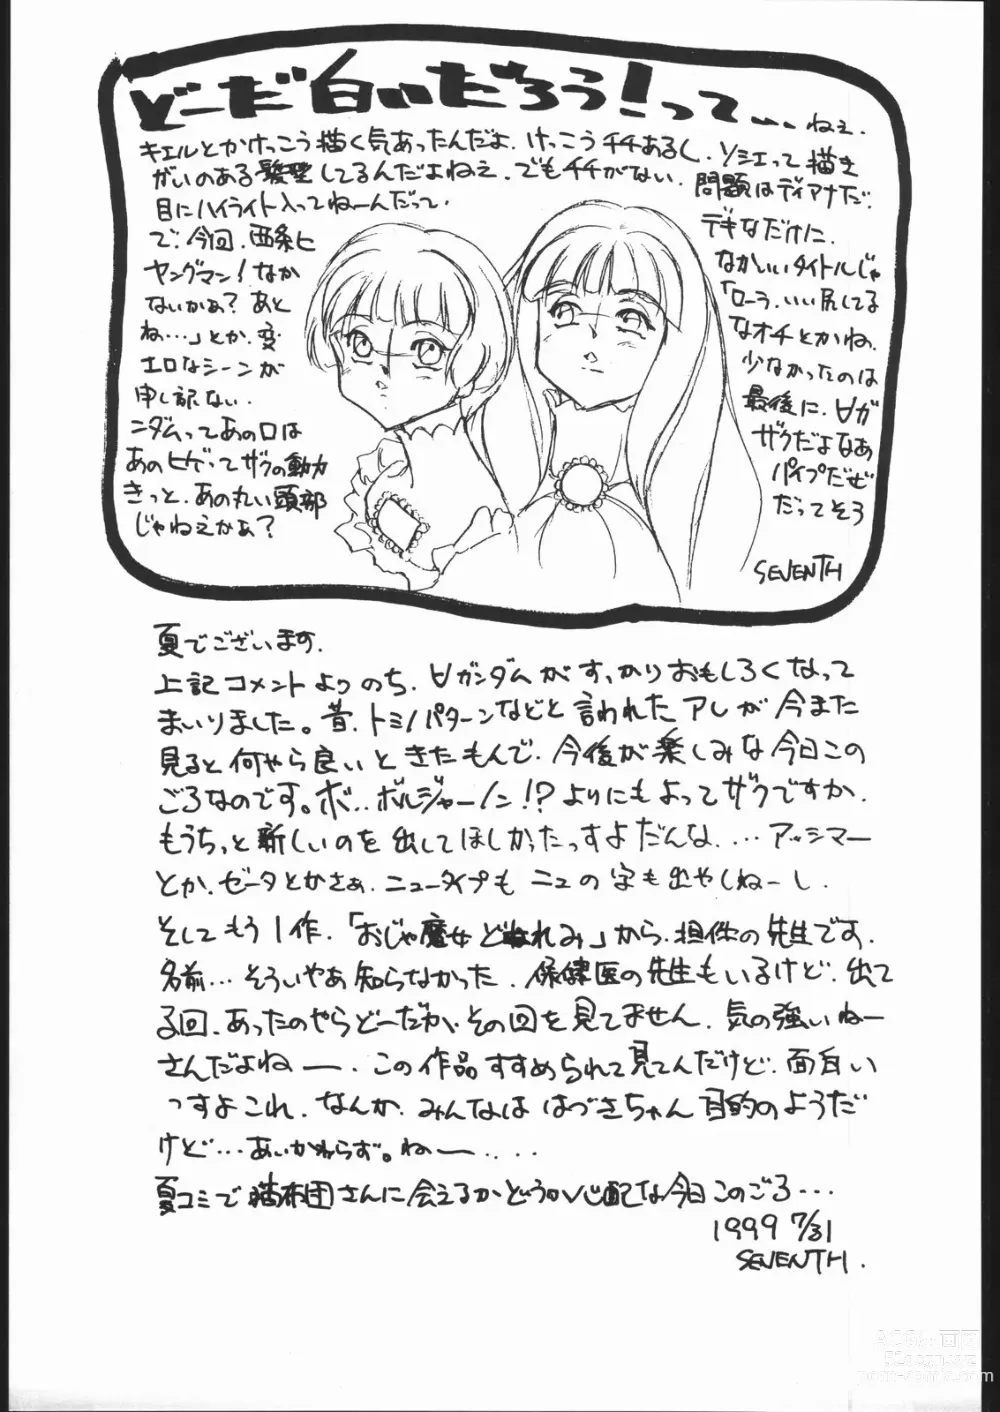 どーだ白いだろう!って... ねぇ.
キエルとかけっこう描く気あったんだよ. けっこうチチあるし. ソシエって描き
がいのある髪型してるんだよねぇ. でもチチがない. 問題はディアナだ.
目にハイライト入ってねーんだって.
で. 今回. 西条ヒ
ヤングマン!なか
ないかぁ? あと
ね...」とか. 変
エロなシーンが
申し訳ない.
ンダムってあの口は
あのヒゲってザクの動力
きっと. あの丸い頭部
じゃねえかぁ?
デキなだけに.
なかいいタイトルじゃ
「ローラ. いい尻してる
なオチとかね.
少なかったのは
最後に. ∀ガ
ザクだよなあ
パイプだぜ
だってそう
SEVENTH
夏でございます.
上記コメントよりのち. ∀ガンダムがすっかりおもしろくなって
まいりました。昔. トミノパターンなどと言われたアレが今また
見ると何やら良いときたもんで. 今後が楽しみな今日この
ごろなのです。ボ..ボルジャーノン!? よりにもよってザクですか.
もうちっと新しいのを出してほしかったっすよだんな.... アッシマー
とか. ゼータとかさぁ. ニュータイプもニュの字も出やしねーし.
そしてもう1作.「おじゃ魔女どれみ」から. 担任の先生です.
名前... そういやあ知らなかった. 保健医の先生もいるけど. 出て
る回. あったのやらどーだか. その回を見てません. 気の強いねー
さんだよねー. この作品すすめられて見てんだけど. 面白い
っすよこれ. なんか. みんなははづきちゃん目的のようだ
けど... あいかわらず。ねー....
夏コミで猫布団さんに会えるかどうか心配な今日このごろ...
1999 7/31
SEVENTH.